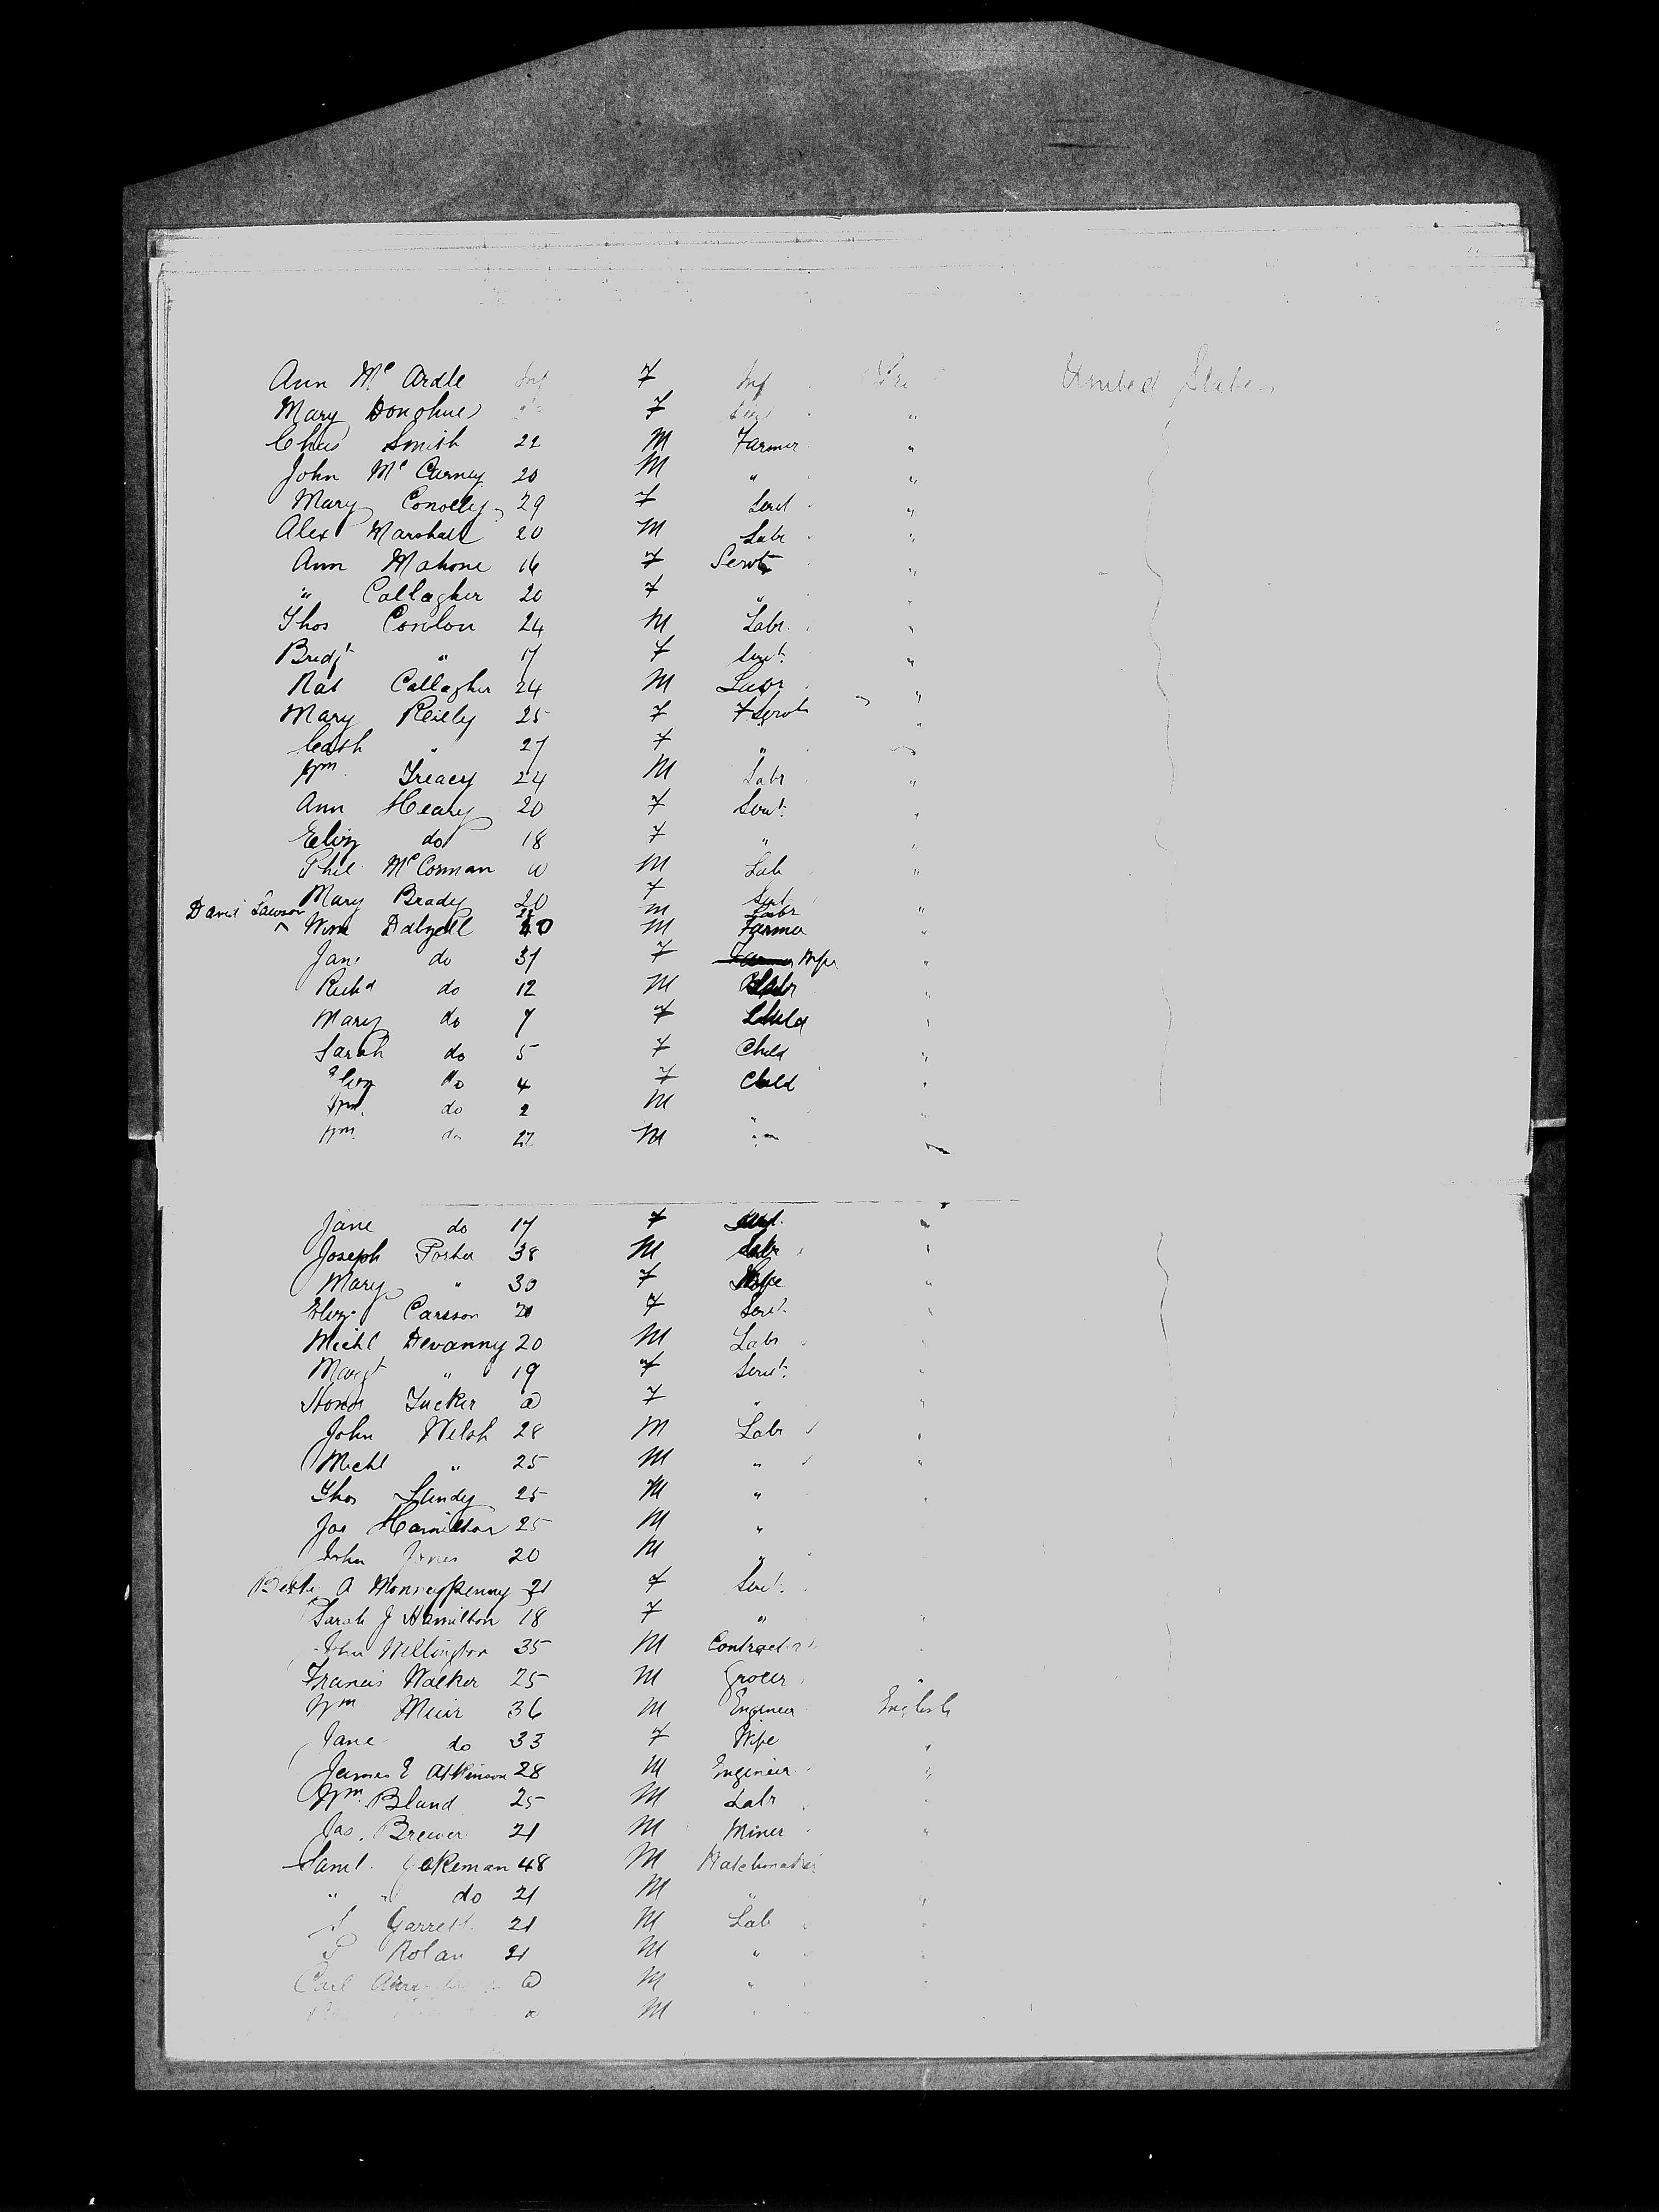 Ann Mc Ardle Inf F Inf Ire United States
Mary Donohue F "
Chas Smith 22 M Farmer "
John Mc Carney 20 M " "
Mary Conolly 29 F Servt "
Alex Marshall 20 M Labr "
Ann Mahone 16 F Servt "
" Callagher 20 F " "
Thos Conlon 24 M Labr "
Bridgt " 17 F Servt "
Nat Callagher 24 M Labr "
Mary Reilly 25 F F Servt "
Cath " 27 F "
Wm Treacy 24 M Labr "
Ann Heary 20 F Servt "
Eliz do 18 F " "
Phil Mc Corman M Lab "
Mary Brady 20 F Servt
David Lawson 22 M Labr "
Wm Dalzell 40 M Farmer "
Jane do 31 F Wife "
Richd do 12 M Labr "
Mary do 7 F Child "
Sarah do 5 F Child "
Eliz do 4 F Child "
Wm. do 2 M " "
Wm do 22 M "
Jane do 17 F Servt "
Joseph Porter 38 M Labr "
Mary " 30 F Wife "
Eliz Carsson 20 F Servt "
Michl Devanny 20 M Labr "
Margt " 19 F Servt. "
Honor Tucker a F " "
John Welsh 28 M Labr "
Michl " 25 M " "
Thos Lundy 25 M " "
Jas Hamilton 25 M "
John Jones 20 M "
A Moneypenny 21 F Servt.
Sarah J Hamilton 18 F " "
John Wellington 35 M Contractor "
Francis Walker 25 M Grocer "
Wm Muir 36 M Engineer English
Jane do 33 F Wife "
James E Atkinson 28 M Engineer "
Wm. Bland 25 M Labr "
Jas. Brewer 21 M Miner "
Saml. Yakeman 48 M Watchmaker
" " do 21 M " "
S Garrett 21 M Lab "
P Nolan 21 M " "
Carl a M " "
a M "